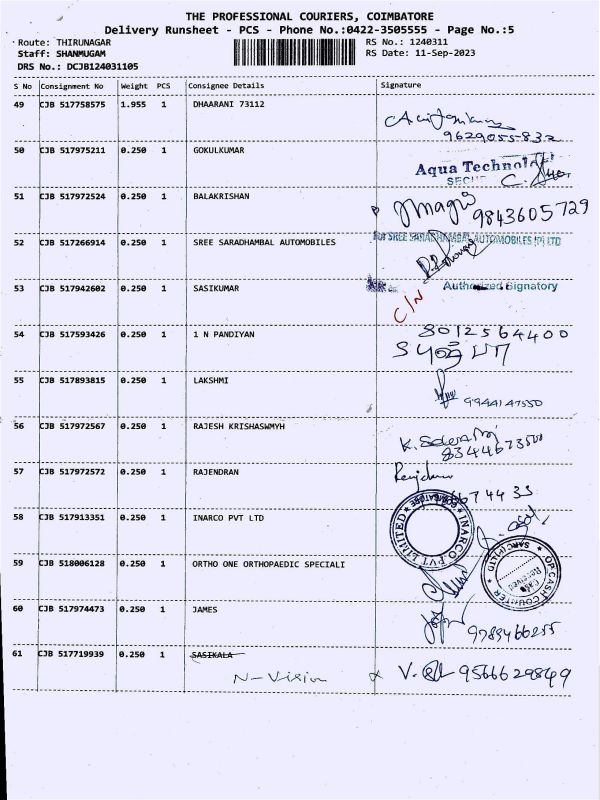 THE PROFESSIONAL COURIERS, COIMBATORE
Delivery Runsheet - PCS - Phone No.:0422-3505555 - Page No.:5
Route: THIRUNAGAR RS No.: 1240311
Staff: SHANMUGAM RS Date: 11-Sep-2023
DRS No.: DCJB124031105
S No Consignment No Weight PCS Consignee Details Signature
49 CJB 517758575 1.955 1 DHAARANI 73112
9629055832
50 CJB 517975211 0.250 1 GOKULKUMAR
Aqua Technolo
SECU
51 CJB 517972524 0.250 1 BALAKRISHAN 9843605729
52 CJB 517266914 0.250 1 SREE SARADHAMBAL AUTOMOBILES For SREE SARADHAMBAL AUTOMOBILES (P) LTD
53 CJB 517942602 0.250 1 SASIKUMAR Authorized Signatory
C/N
54 CJB 517593426 0.250 1 1 N PANDIYAN 8012564400
55 CJB 517893815 0.250 1 LAKSHMI
9944147550
56 CJB 517972567 0.250 1 RAJESH KRISHASWMYH
57 CJB 517972572 0.250 1 RAJENDRAN
58 CJB 517913351 0.250 1 INARCO PVT LTD INARCO PVT LIMITED COIMBATORE
59 CJB 518006128 0.250 1 ORTHO ONE ORTHOPAEDIC SPECIALI
OP CASH COUNTER
Received
60 CJB 517974473 0.250 1 JAMES
9789466255
61 CJB 517719939 0.250 1 SASIKALA
N-Vision 9566629849